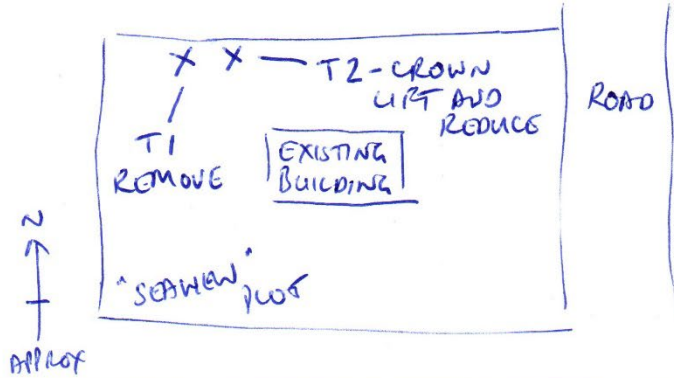 T2 - CROWN
LIFT AND
REDUCE
ROAD
T1
REMOVE
EXISTING
BUILDING
N
"SEAVIEW"
PLOT
APPROX